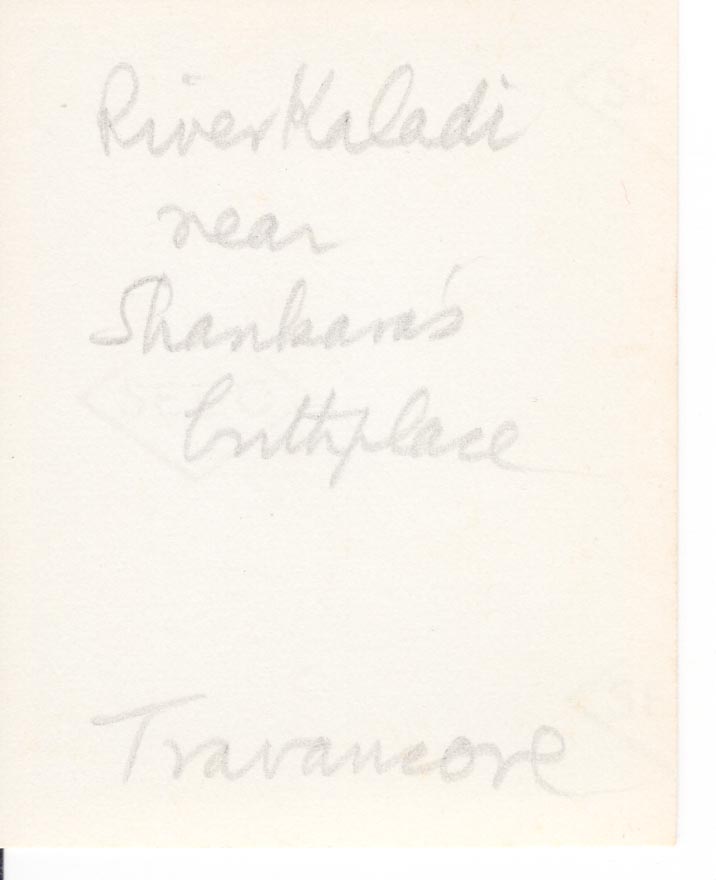 River Kaladi
near
Shankara's
birthplace
Travancore